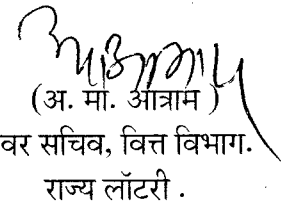 (अ. मा. आत्राम )
वर सचिव, वित्त विभाग.
राज्य लॉटरी .